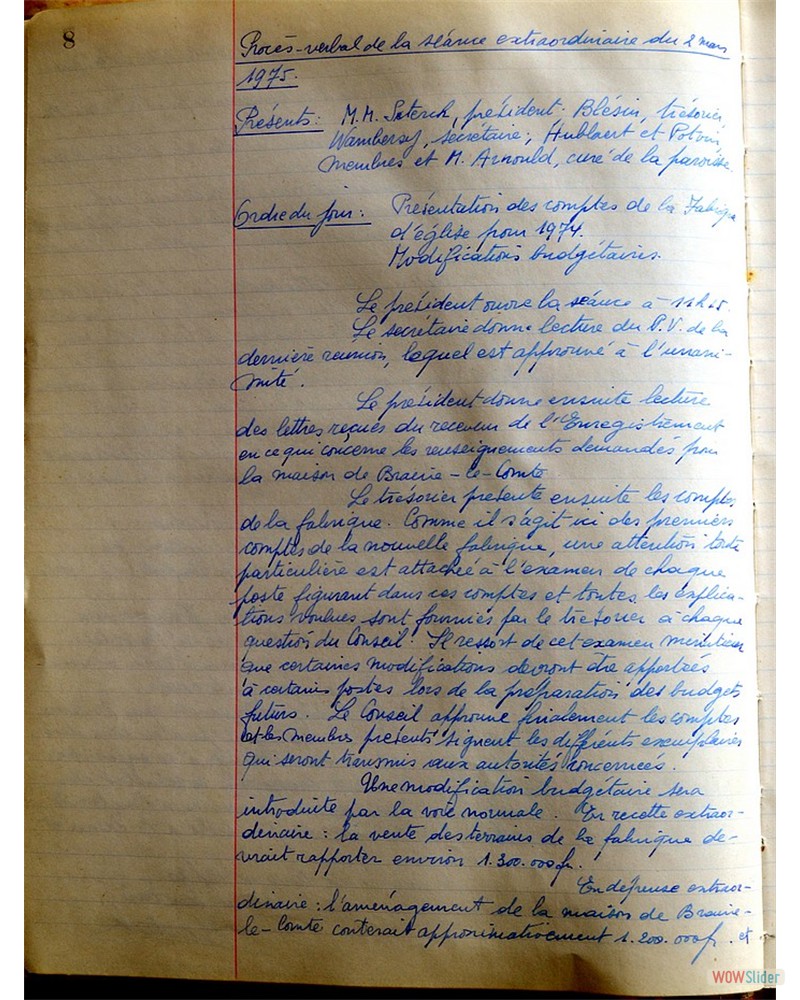 8
Procès-verbal de la séance extraordinaire du 2 mars
1975.
Présents: M.M. Sterck, président; Blésin, trésorier
Wambersy, secrétaire; Hublaert et Potvin
membres et M. Arnould, curé de la paroisse.
Ordre du jour: Présentation des comptes de la Fabrique
d'église pour 1974.
Modifications budgétaires.
Le président ouvre la séance à 11h
Le secrétaire donne lecture du P.V. de la
dernière réunion, lequel est approuvé à l'unani-
mité.
Le président donne ensuite lecture
des lettres reçues du receveur de l'Enregistrement
en ce qui concerne les renseignements demandés pour
la maison de Braine-le-Comte
Le trésorier présente ensuite les comptes
de la fabrique. Comme il s'agit ici des premiers
comptes de la nouvelle fabrique, une attention toute
particulière est attachée à l'examen de chaque
poste figurant dans ces comptes et toutes les explica-
tions voulues sont fournies par le trésorier à chaque
question du Conseil. Il ressort de cet examen minutieux
que certaines modifications devront être apportées
à certains postes lors de la préparation des budgets
futurs. Le Conseil approuve finalement les comptes
et les membres présents signent les différents exemplaires
qui seront transmis aux autorités concernées.
Une modification budgétaire sera
introduite par la voie normale. En recette extraor-
dinaire: la vente des terrains de la fabrique de-
vrait rapporter environ 1.300.000 fr.
En dépense extraor-
dinaire: l'aménagement de la maison de Braine-
le-Comte conterait approximativement 1.200.000 fr. et
WOWSlider